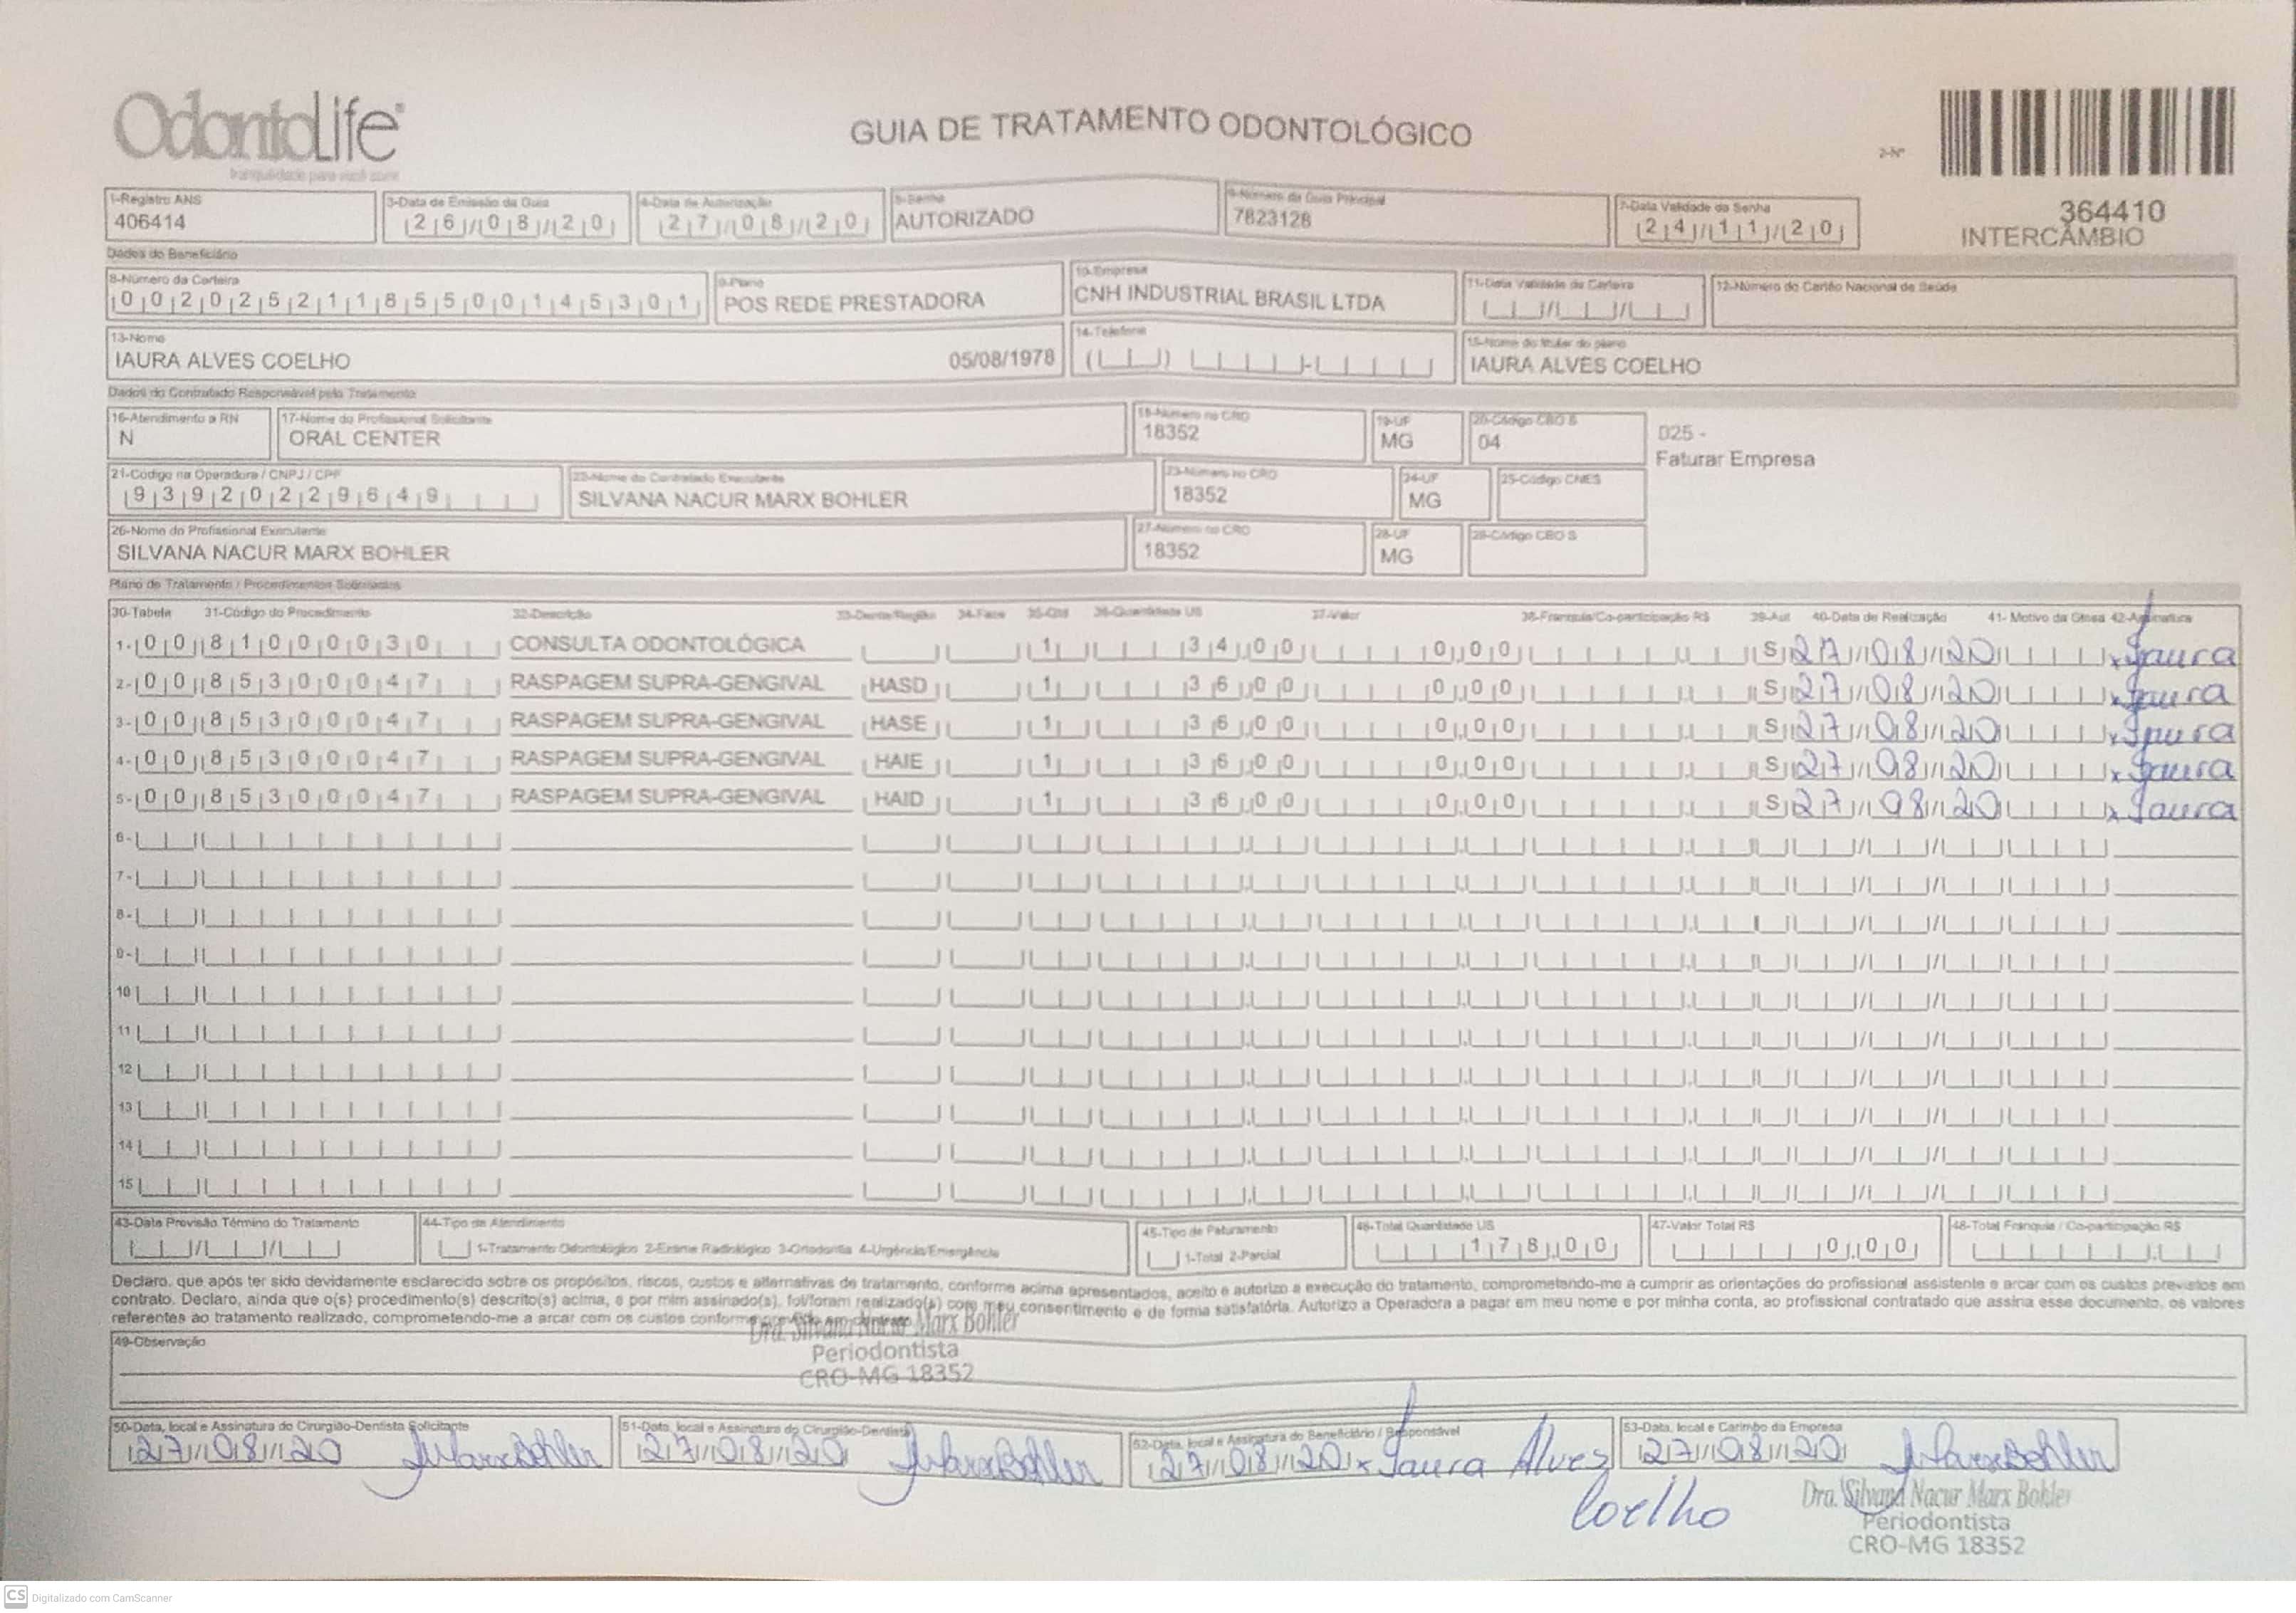 OdontoLife
tranquilidade para você sorrir
GUIA DE TRATAMENTO ODONTOLÓGICO
2-Nº
364410
INTERCÂMBIO
1-Registro ANS
406414
3-Data de Emissão da Guia
26/08/20
4-Data de Autorização
27/08/20
5-Senha
AUTORIZADO
6-Número da Guia Principal
7823128
7-Data Validade da Senha
24/11/20
Dados do Beneficiário
8-Número da Carteira
00202521185500145301
9-Plano
POS REDE PRESTADORA
10-Empresa
CNH INDUSTRIAL BRASIL LTDA
11-Data Validade da Carteira
12-Número do Cartão Nacional de Saúde
13-Nome
IAURA ALVES COELHO 05/08/1978
14-Telefone
15-Nome do titular do plano
IAURA ALVES COELHO
Dados do Contratado Responsável pelo Tratamento
16-Atendimento a RN
N
17-Nome do Profissional Solicitante
ORAL CENTER
18-Número no CRO
18352
19-UF
MG
20-Código CBO S
04
025 -
Faturar Empresa
21-Código na Operadora / CNPJ / CPF
93920229649
22-Nome do Contratado Executante
SILVANA NACUR MARX BOHLER
23-Número no CRO
18352
24-UF
MG
25-Código CNES
26-Nome do Profissional Executante
SILVANA NACUR MARX BOHLER
27-Número no CRO
18352
28-UF
MG
29-Código CBO S
Plano de Tratamento / Procedimentos Solicitados
30-Tabela 31-Código do Procedimento 32-Descrição 33-Dente/Região 34-Face 35-Qtd 36-Quantidade US 37-Valor 38-Franquia/Co-participação R$ 39-Aut 40-Data de Realização 41- Motivo da Glosa 42-Assinatura
1- 00 81000030 CONSULTA ODONTOLÓGICA 1 34,00 0,00 S 27/08/20 x Iaura
2- 00 85300047 RASPAGEM SUPRA-GENGIVAL HASD 1 36,00 0,00 S 27/08/20 x Iaura
3- 00 85300047 RASPAGEM SUPRA-GENGIVAL HASE 1 36,00 0,00 S 27/08/20 x Iaura
4- 00 85300047 RASPAGEM SUPRA-GENGIVAL HAIE 1 36,00 0,00 S 27/08/20 x Iaura
5- 00 85300047 RASPAGEM SUPRA-GENGIVAL HAID 1 36,00 0,00 S 27/08/20 x Iaura
6-
7-
8-
9-
10
11
12
13
14
15
43-Data Previsão Término do Tratamento
44-Tipo de Atendimento
1-Tratamento Odontológico 2-Exame Radiológico 3-Ortodontia 4-Urgência/Emergência
45-Tipo de Faturamento
1-Total 2-Parcial
46-Total Quantidade US
178,00
47-Valor Total R$
0,00
48-Total Franquia / Co-participação R$
Declaro, que após ter sido devidamente esclarecido sobre os propósitos, riscos, custos e alternativas de tratamento, conforme acima apresentados, aceito e autorizo a execução do tratamento, comprometendo-me a cumprir as orientações do profissional assistente e arcar com os custos previstos em
contrato. Declaro, ainda que o(s) procedimento(s) descrito(s) acima, e por mim assinado(s), foi/foram realizado(s) com meu consentimento e de forma satisfatória. Autorizo a Operadora a pagar em meu nome e por minha conta, ao profissional contratado que assina esse documento, os valores
referentes ao tratamento realizado, comprometendo-me a arcar com os custos conforme
Dra. Silvana Nacur Marx Bohler
Periodontista
CRO-MG 18352
49-Observação
50-Data, local e Assinatura do Cirurgião-Dentista Solicitante
27/08/20 SMarxBohler
51-Data, local e Assinatura do Cirurgião-Dentista
27/08/20 SMarxBohler
52-Data, local e Assinatura do Beneficiário / Responsável
27/08/20 x Iaura Alves
Coelho
53-Data, local e Carimbo da Empresa
27/08/20 SMarxBohler
Dra. Silvana Nacur Marx Bohler
Periodontista
CRO-MG 18352
CS Digitalizado com CamScanner